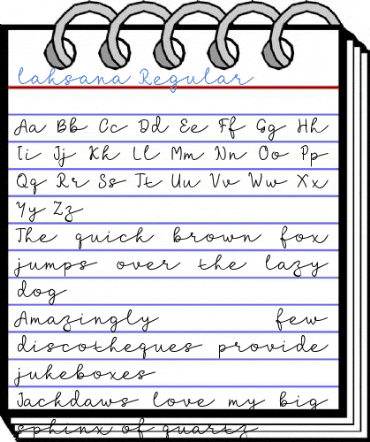 laksana Regular
Aa Bb Cc Dd Ee Ff Gg Hh
Ii Jj Kk Ll Mm Nn Oo Pp
Qq Rr Ss Tt Uu Vv Ww Xx
Yy Zz
The quick brown fox
jumps over the lazy
dog
Amazingly few
discotheques provide
jukeboxes
Jackdaws love my big
sphinx of quartz